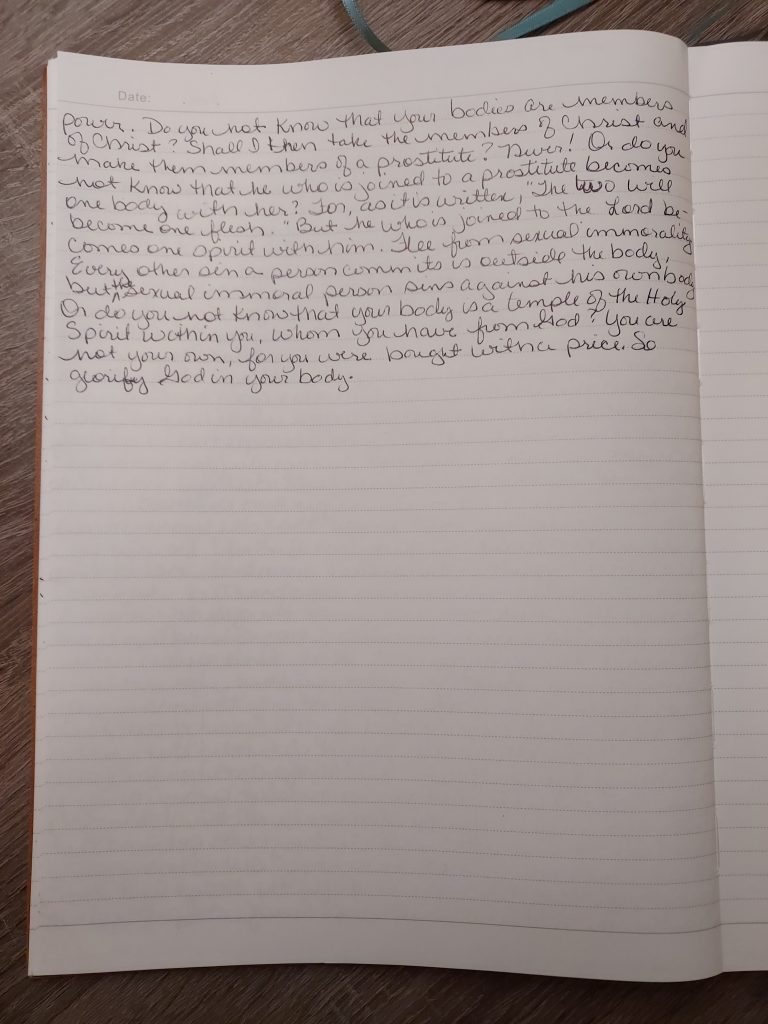 Date:
power. Do you not know that your bodies are members
of Christ? Shall I then take the members of Christ and
make them members of a prostitute? Never! Or do you
not know that he who is joined to a prostitute becomes
one body with her? For, as it is written, "The two will
become one flesh." But he who is joined to the Lord be-
comes one spirit with him. Flee from sexual immorality
Every other sin a person commits is outside the body,
but the sexual immoral person sins against his own body
Or do you not know that your body is a temple of the Holy
Spirit within you, whom you have from God? You are
not your own, for you were bought with a price. So
glorify God in your body.